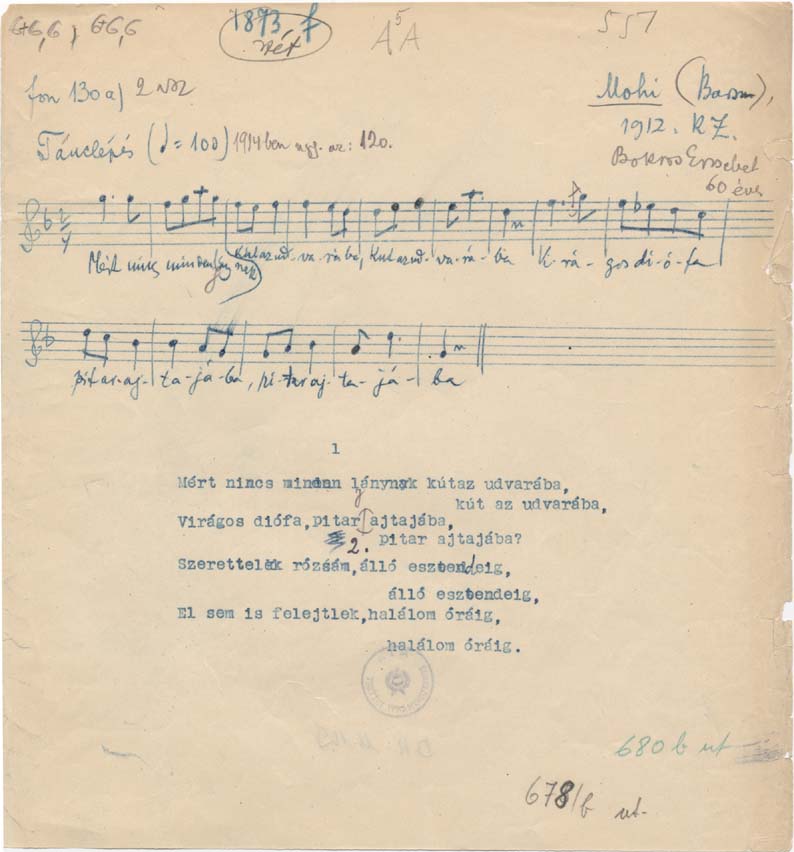 6+6,6, 6+6,6
1893 f
A⁵A
551
fon 130a) 2 vsz
Mohi (Bars m),
1912. KZ.
Táncłépés (♩=100) 1914ben ugy. az: 120.
Bokros Erzsébet
60 éves
2/4
Mért nincs minden lánynak Kutazud-va-rába, Kutazud-va-rá-ba Vi-rá-gos di-ó-fa
pitar-aj-ta-já-ba, pi-taraj-ta-já-ba
1
Mért nincs minden lánynak kútaz udvarába,
kút az udvarába,
Virágos diófa, pitar ajtajába,
pitar ajtajába?
2.
Szerettelek rózsám, álló esztendeig,
álló esztendeig,
El sem is felejtlek, halálom óráig,
halálom óráig.
680 b ut
678/b ut.